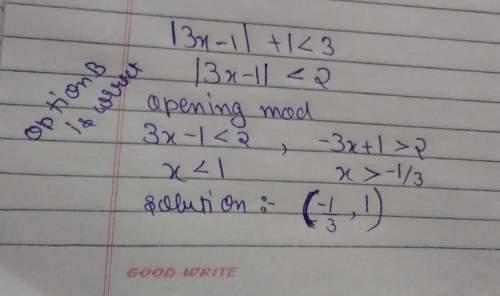 |3x-1| +1<3
|3x-1| <2
opening mod
3x-1<2 , -3x+1>2
x<1 x>-1/3
Solution :- (-1/3, 1)
Option B
is correct
GOOD WRITE